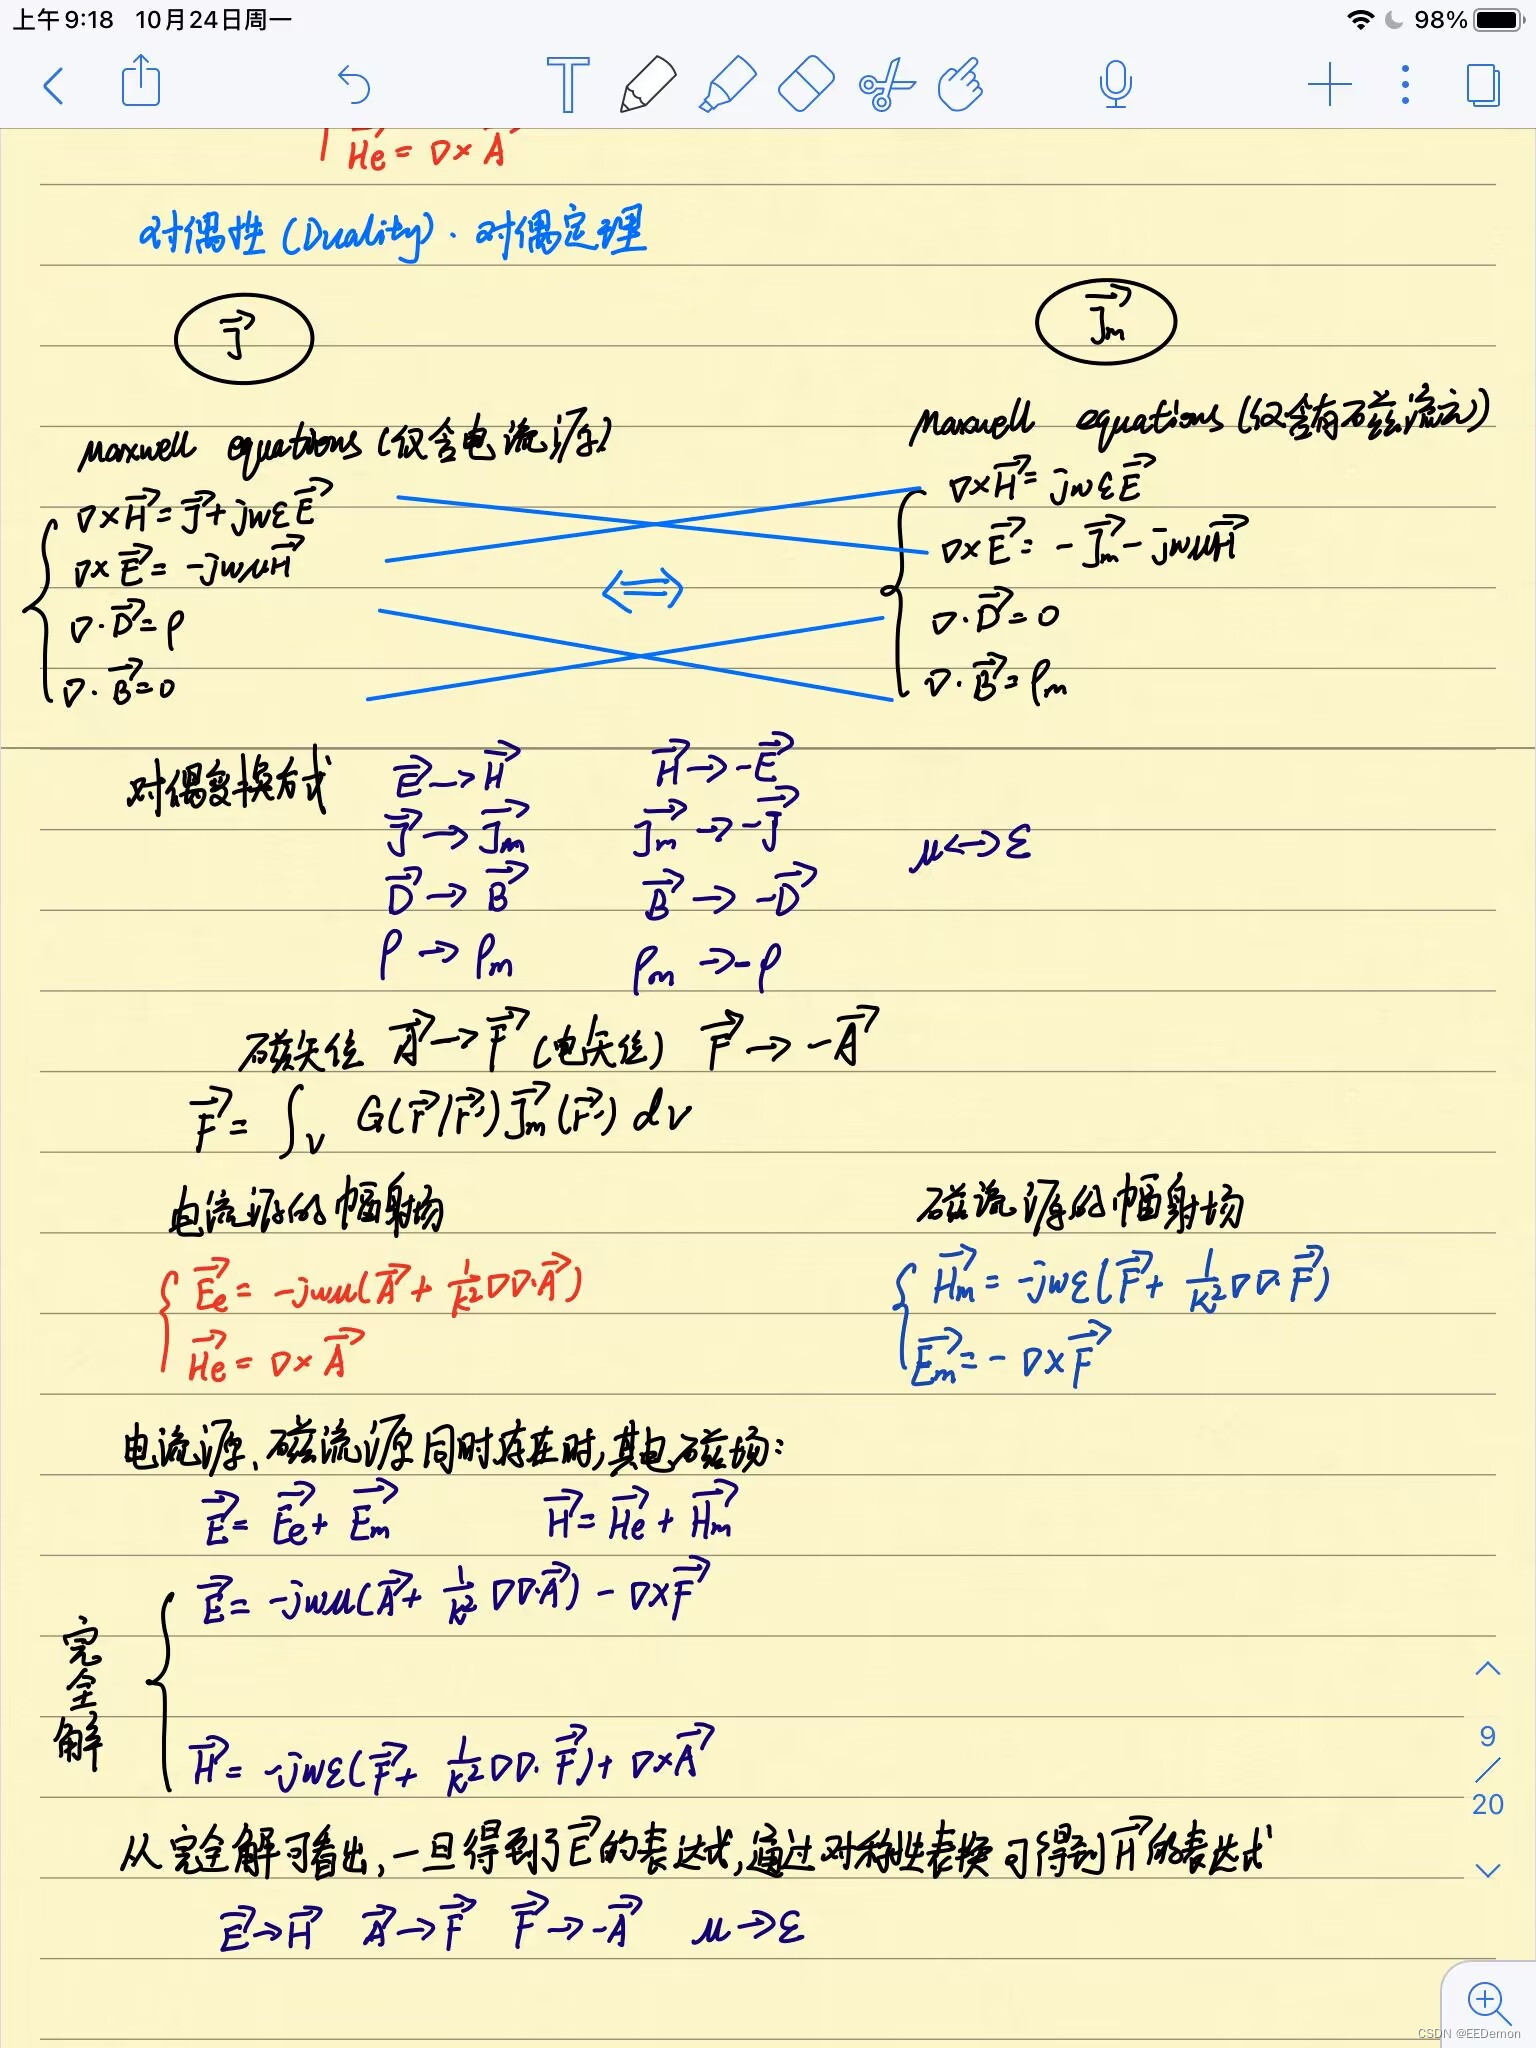 上午9:18 10月24日周一 98%
He = ∇× A
对偶性 (Duality) · 对偶定理
J Jm
Maxwell equations (仅含电流源) Maxwell equations (仅含有磁流源)
∇×H = J + jωεE ∇×H = jωεE
∇×E = -jωμH ∇×E = -Jm - jωμH
∇·D = ρ ∇·D = 0
∇·B = 0 ∇·B = ρm
对偶变换方式 E → H H → -E
J → Jm Jm → -J μ ↔ ε
D → B B → -D
ρ → ρm ρm → -ρ
磁矢位 A → F (电矢位) F → -A
F = ∫v G(r/r')Jm(r') dv
电流源的幅射场 磁流源的幅射场
Ee = -jωμ(A + 1/k² ∇∇·A) Hm = -jωε(F + 1/k² ∇∇·F)
He = ∇×A Em = -∇×F
电流源、磁流源同时存在时,其电磁场:
E = Ee + Em H = He + Hm
完全解
E = -jωμ(A + 1/k² ∇∇·A) - ∇×F
H = -jωε(F + 1/k² ∇∇·F) + ∇×A
9
/
20
从完全解可看出,一旦得到了E的表达式,通过对称性表换可得到H的表达式
E → H A → F F → -A μ → ε
CSDN @EEDemon